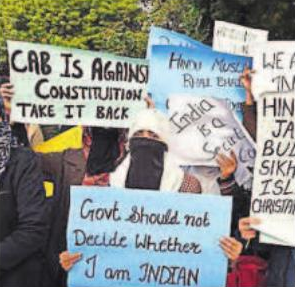 CAB IS AGAINS
CONSTITUTION
TAKE IT BACK
HINDU MUSL
BHAI BHAI
India
is a
WE A
HIN
JA
BUD
SIKH
ISL
CHRISTIA
Govt should not
Decide Whether
I am INDIAN